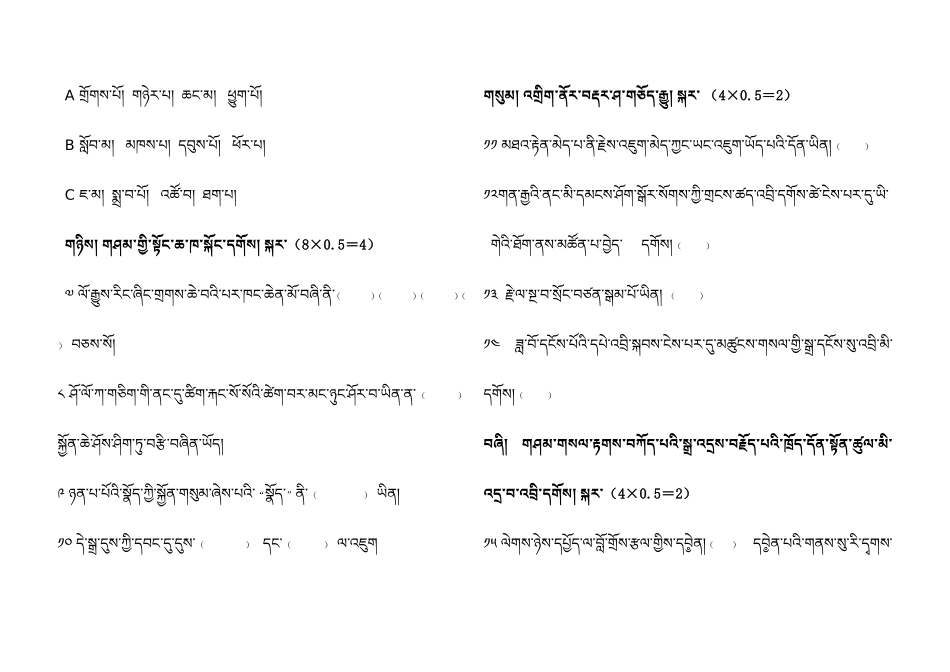 A གྲོགས་པོ། གཉེར་པ། ཆང་མ། ཕྱུག་པོ།
B སློབ་མ། མཁས་པ། དབུས་པོ། ཕོར་པ།
C ཇ་མ། སྨྲ་བ་པོ། འཚོ་བ། ཐག་པ།
གཉིས། གཤམ་གྱི་སྟོང་ཆ་ཁ་སྐོང་དགོས། སྐར་（8×0.5＝4）
༧ ལོ་རྒྱུས་རིང་ཞིང་གྲགས་ཆེ་བའི་པར་ཁང་ཆེན་མོ་བཞི་ནི་（ ）（ ）（ ）（
）བཅས་སོ།
༨ ཤོ་ལོ་ཀ་གཅིག་གི་ནང་དུ་ཚིག་རྐང་སོ་སོའི་ཚེག་བར་མང་ཉུང་ཤོར་བ་ཡིན་ན་（ ）
སྐྱོན་ཆེ་ཤོས་ཤིག་ཏུ་བརྩི་བཞིན་ཡོད།
༩ ཉན་པ་པོའི་སྣོད་ཀྱི་སྐྱོན་གསུམ་ཞེས་པའི་“སྣོད་”ནི་（ ）ཡིན།
༡༠ དེ་སྒྲ་དུས་ཀྱི་དབང་དུ་དུས་（ ）དང་（ ）ལ་འཇུག
གསུམ། འགྲིག་ནོར་བརྡར་ཤ་གཅོད་རྒྱུ། སྐར་（4×0.5＝2）
༡༡ མཐའ་རྟེན་མེད་པ་ནི་རྗེས་འཇུག་མེད་ཀྱང་ཡང་འཇུག་ཡོད་པའི་དོན་ཡིན།（ ）
༡༢གན་རྒྱའི་ནང་མི་དམངས་ཤོག་སྒོར་སོགས་ཀྱི་གྲངས་ཚད་འབྲི་དགོས་ཚེ་ངེས་པར་དུ་ཡི་
གེའི་ཐོག་ནས་མཚོན་པ་བྱེད་ དགོས།（ ）
༡༣ རྗེ་ལ་སྔ་བ་སྲོང་བཙན་སྒམ་པོ་ཡིན།（ ）
༡༤ ཟླ་བོ་དངོས་པོའི་དཔེ་འབྲི་སྐབས་ངེས་པར་དུ་མཚུངས་གསལ་གྱི་སྒྲ་དངོས་སུ་འབྲི་མི་
དགོས།（ ）
བཞི། གཤམ་གསལ་རྟགས་བཀོད་པའི་སྒྲ་འདྲས་བརྗོད་པའི་ཁྲོད་དོན་སྟོན་ཚུལ་མི་
འདྲ་བ་འབྲི་དགོས། སྐར་（4×0.5＝2）
༡༥ ལེགས་ཉེས་དཔྱོད་ལ་བློ་གྲོས་རྩལ་གྱིས་དབེན།（ ） དབེན་པའི་གནས་སུ་རི་དྭགས་